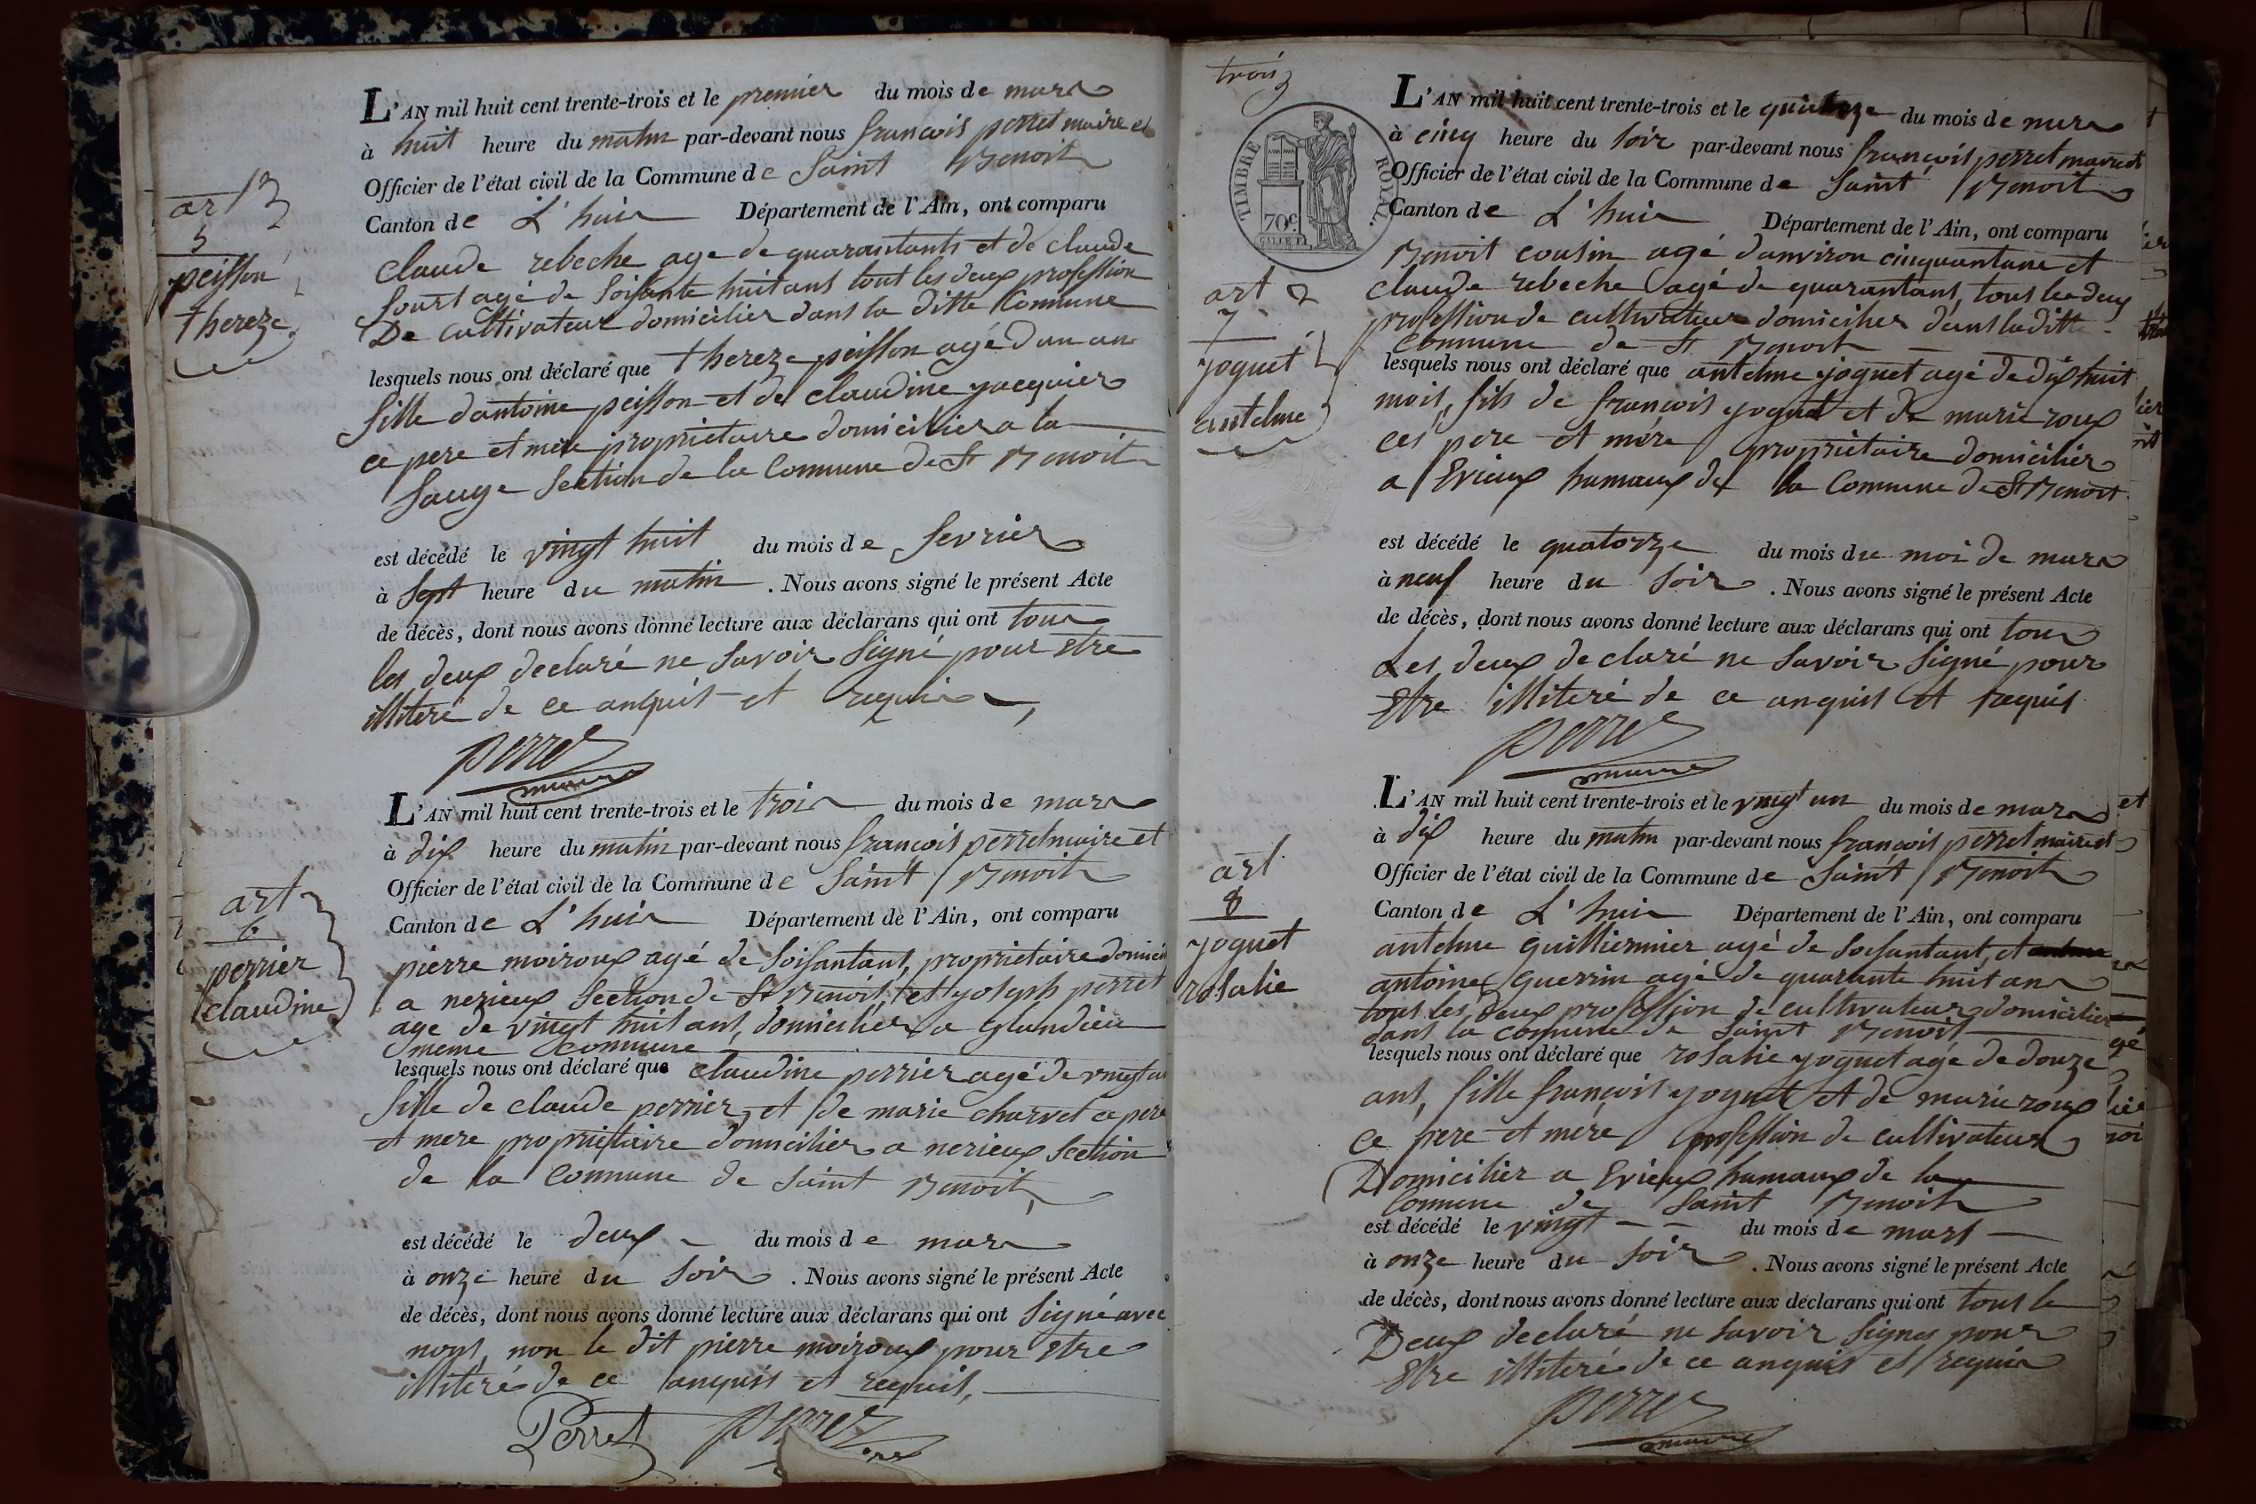 art
5
peisson
thereze
L'AN mil huit cent trente-trois et le premier du mois de mars
à huit heure du matin par-devant nous francois perret maire et
Officier de l'état civil de la Commune de Saint Benoit
Canton de L'huis Département de l'Ain, ont comparu
Claude rebeche age de quarantants et de claude
sourt agé de soisante huit ans tout les deux profession
De cultivateur domicilier dans la ditte Commune
lesquels nous ont déclaré que thereze peisson agé d'un an
fille d'antoine peisson et de claudine jacquier
ce pere et mere proprietaire domicilier a la
sauge section de la Commune de St Benoit
est décédé le vingt huit du mois de fevrier
à sept heure du matin . Nous avons signé le présent Acte
de décès, dont nous avons donné lecture aux déclarans qui ont tous
les deux declaré ne savoir signé pour etre
illiteré de ce anquis et requis
perret
maire
art
6
perrier
claudine
L'AN mil huit cent trente-trois et le trois du mois de mars
à dix heure du matin par-devant nous francois perret maire et
Officier de l'état civil de la Commune de Saint Benoit
Canton de L'huis Département de l'Ain, ont comparu
pierre moiroux agé de soisantans, proprietaire domicié
a nerieux section de St Benoit, et yoseph perret
age de vingt huit ans, domicilier a glandieu
meme commune
lesquels nous ont déclaré que claudine perrier agé de vingt un
fille de claude perrier et de marie charvet ce pere
et mere proprietaire domicilier a nerieux section
de la commune de saint Benoit
est décédé le deux du mois de mars
à onze heure du soir . Nous avons signé le présent Acte
de décès, dont nous avons donné lecture aux déclarans qui ont signé avec
nous, non le dit pierre moiroux pour etre
illiteré de ce anquis et requis,
Perret perret
trois
TIMBRE ROYAL
70c
art
7
yoguet
antelme
L'AN mil huit cent trente-trois et le quinze du mois de mars
à cinq heure du soir par-devant nous françois perret maire et
Officier de l'état civil de la Commune de Saint Benoit
Canton de L'huis Département de l'Ain, ont comparu
Benoit cousin agé d'anviron cinquantane et
claude rebeche agé de quarantans, tous les deux
profession de cultivateur domicilier dans la ditte
commune de St Benoit
lesquels nous ont déclaré que antelme yoguet agé de dix huit
mois, fils de francois yoguet et de marie roux
ces pere et mére proprietaire domicilier
a Evieux hamaux de la Commune de St Benoit
est décédé le quatorze du mois du moi de mars
à neuf heure du soir . Nous avons signé le présent Acte
de décès, dont nous avons donné lecture aux déclarans qui ont tous
Les deux declaré ne savoir signé pour
etre illiteré de ce anquis et requis
perret
maire
art
8
yoguet
rosalie
L'AN mil huit cent trente-trois et le vingt un du mois de mars
à dix heure du matin par-devant nous francois perret maire et
Officier de l'état civil de la Commune de Saint Benoit
Canton de L'huis Département de l'Ain, ont comparu
antelme guillierminer agé de soisantant, et
antoine Guerrin agé de quarante huit ans
tous les deux profession de cultivateur domicilier
dans la commune de saint Benoit
lesquels nous ont déclaré que rosalie yoguet age de douze
ans, fille francois yoguet et de marie roux
ce pere et mére profession de cultivateur
Domicilier a Evieux hamaux de la
Commune de Saint Benoit
est décédé le vingt du mois de mars
à onze heure du soir . Nous avons signé le présent Acte
de décès, dont nous avons donné lecture aux déclarans qui ont tous le
Deux declaré ne savoir signer pour
etre illiteré de ce anquis et requis
perret
maire